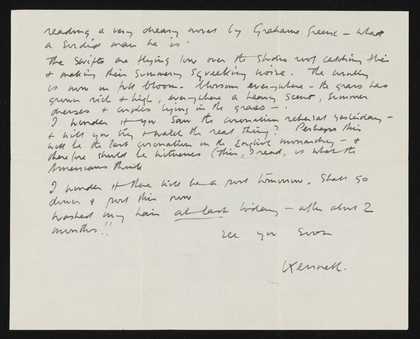 reading a very dreary novel by Grahame Greene – what
a sordid man he is
The Swifts are flying low over the Studio roof catching flies
& making their Summery Squeeking noise. The country
is now in full bloom. blossom everywhere – the grass has
grown rich & high, everywhere a heavy scent, Summer
dresses & couples lying in the grass –.
I wonder if you saw the coronation rehersal yesterday –
& will you try & watch the real thing? Perhaps this
will be the last coronation in the English monarchy – &
therefore should be witnessed (this, I read, is what the
Americans think
I wonder if there will be a post tomorrow. Shall go
down & post this now
washed my hair at last today – after about 2
months!!
see you soon
Kenneth.